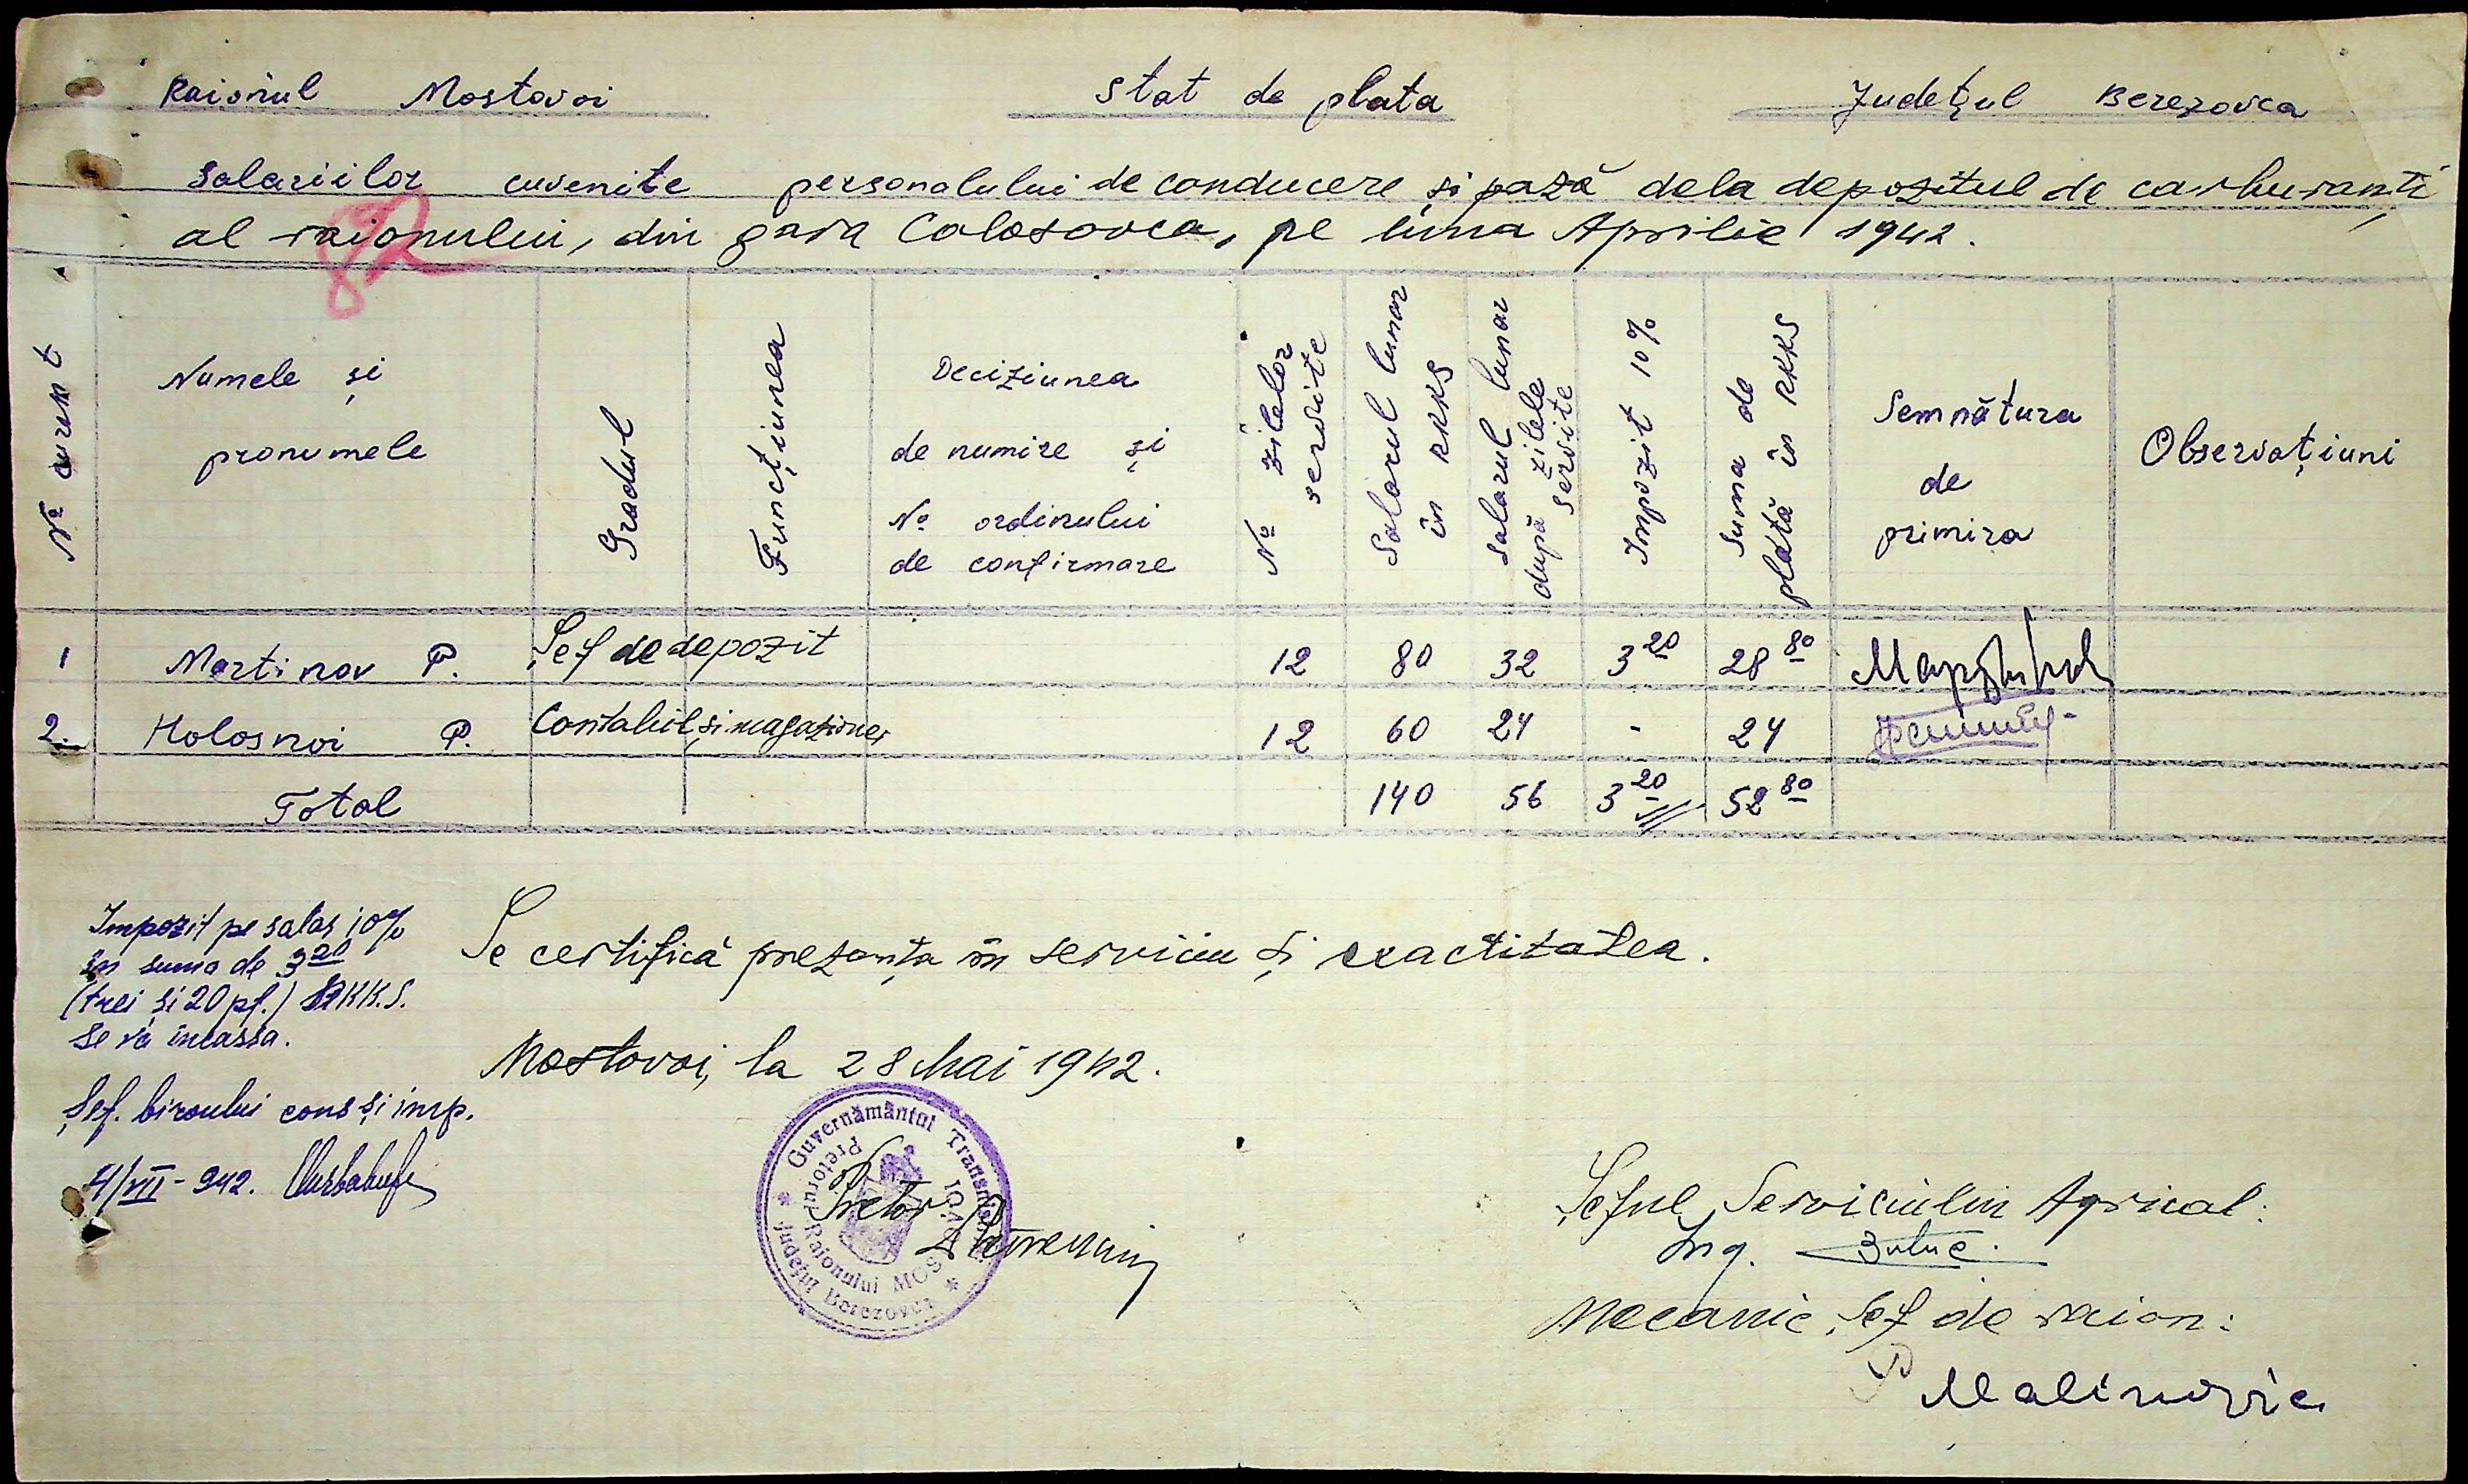 Raionul Mostovoi
Stat de plata
Județul Berezovca
Salariilor cuvenite personalului de conducere și pază dela depozitul de carburanți
al raionului, din gara Colosovca, pe luna Aprilie 1942.
№ curent
Numele și pronumele
Gradul
Funcțiunea
Deciziunea de numire și № ordinului de confirmare
№ zilelor servite
Salarul lunar în RKKS
Salarul lunar după zilele servite
Impozit 10%
Suma de plată în RKKS
Semnătura de primire
Observațiuni
1 Martinov P. Șef de depozit 12 80 32 3 20 28 80
2. Holosnoi P. Contabil și magazioner 12 60 24 - 24
Total 140 56 3 20 52 80
Impozit pe salar 10%
în suma de 3 20
(trei și 20 pf.) RKK.S.
se va incassa.
Șef. biroului cons și imp.
4/VII-942.
Se certifică prezența în serviciu și exactitatea.
Mostovoi, la 28 Mai 1942.
Guvernământul Transnistriei
Pretorul Raionului MOSTOVOI
Județul Berezovca
Pretor
Șeful Serviciului Agricol:
Ing.
Mecanic Șef de raion:
P Malinovic